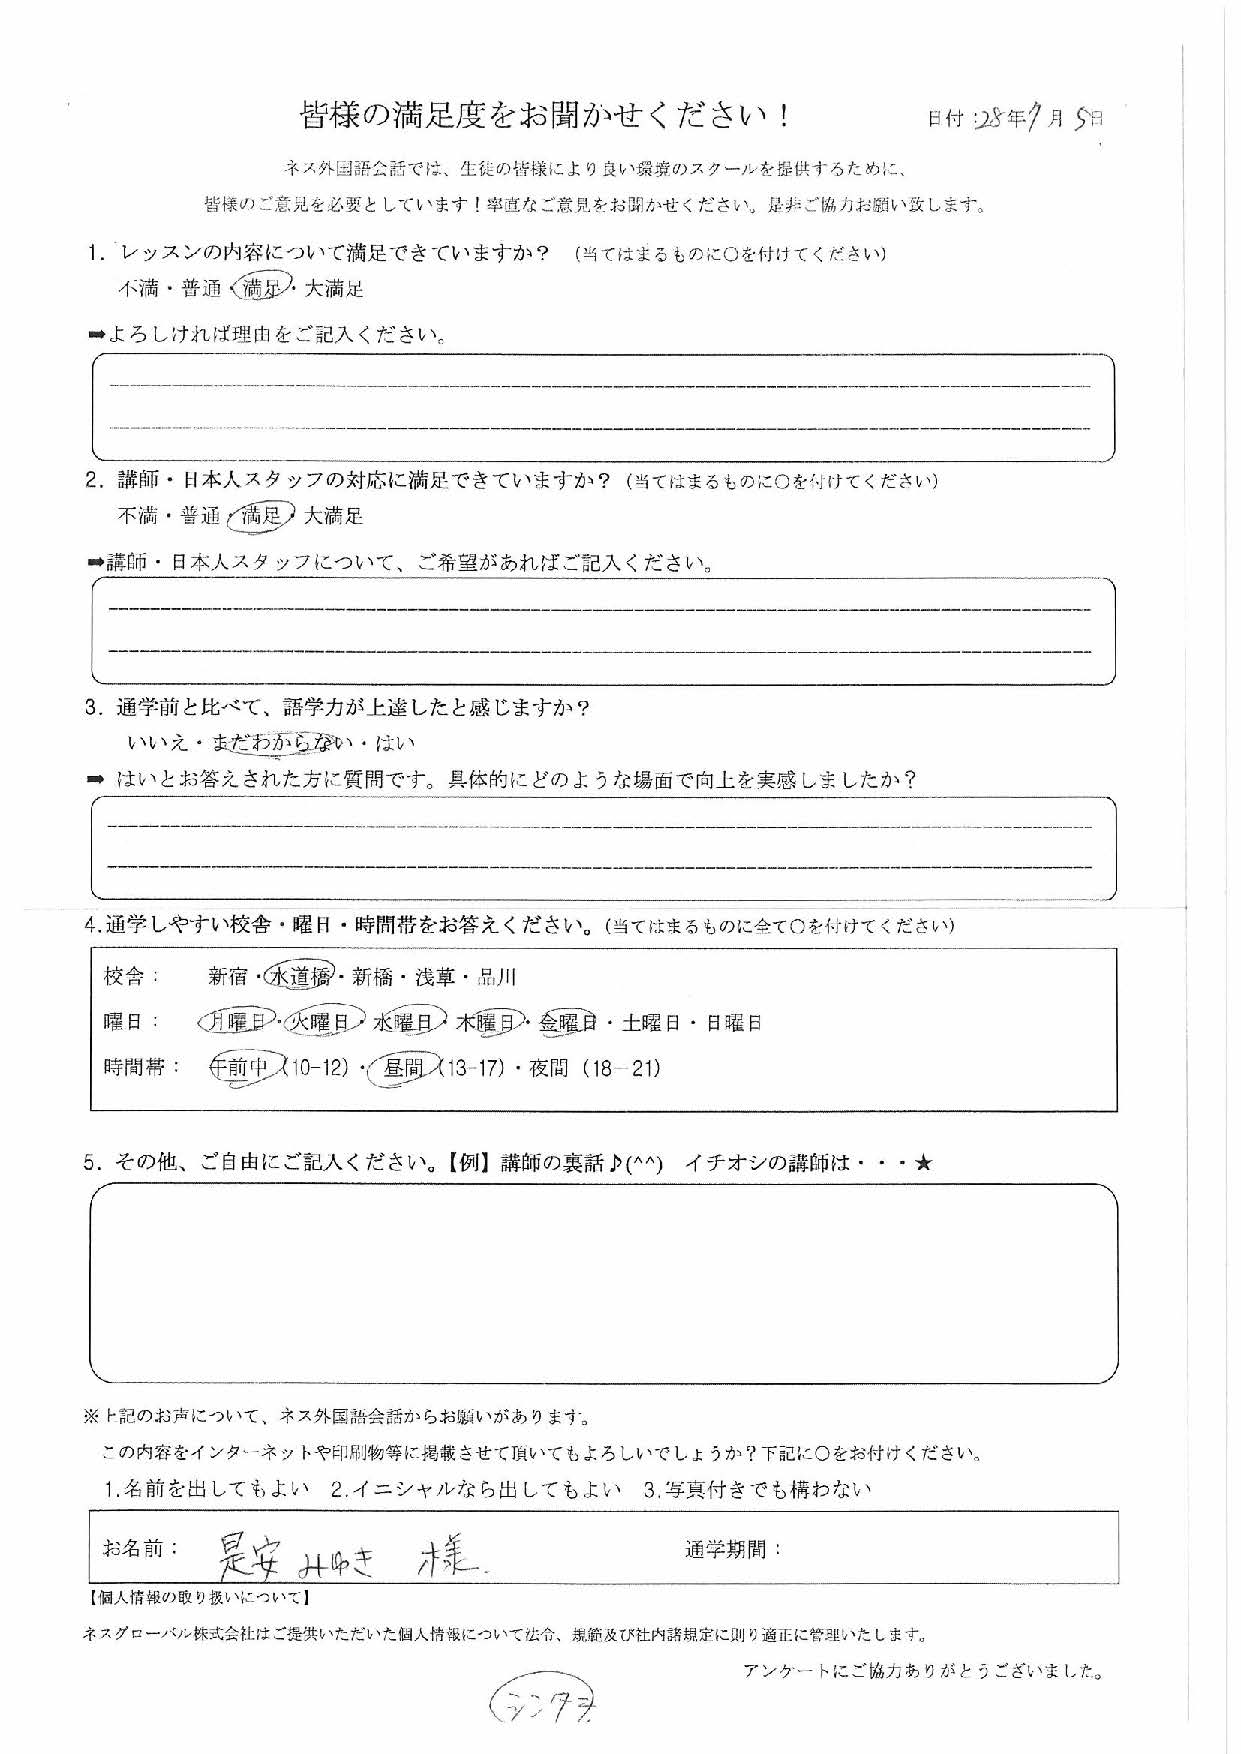 皆様の満足度をお聞かせください！
日付：28年7月5日
ネス外国語会話では、生徒の皆様により良い環境のスクールを提供するために、
皆様のご意見を必要としています！率直なご意見をお聞かせください。是非ご協力お願い致します。
1. レッスンの内容について満足できていますか？ （当てはまるものに〇を付けてください）
不満・普通・満足・大満足
➡よろしければ理由をご記入ください。
2. 講師・日本人スタッフの対応に満足できていますか？（当てはまるものに〇を付けてください）
不満・普通・満足・大満足
➡講師・日本人スタッフについて、ご希望があればご記入ください。
3. 通学前と比べて、語学力が上達したと感じますか？
いいえ・まだわからない・はい
➡ はいとお答えされた方に質問です。具体的にどのような場面で向上を実感しましたか？
4.通学しやすい校舎・曜日・時間帯をお答えください。（当てはまるものに全て〇を付けてください）
校舎： 新宿・水道橋・新橋・浅草・品川
曜日： 月曜日・火曜日・水曜日・木曜日・金曜日・土曜日・日曜日
時間帯： 午前中（10-12）・昼間（13-17）・夜間（18-21）
5. その他、ご自由にご記入ください。【例】講師の裏話♪(^^) イチオシの講師は・・・★
※上記のお声について、ネス外国語会話からお願いがあります。
この内容をインターネットや印刷物等に掲載させて頂いてもよろしいでしょうか？下記に〇をお付けください。
1.名前を出してもよい 2.イニシャルなら出してもよい 3.写真付きでも構わない
お名前： 是安 みゆき 様. 通学期間：
【個人情報の取り扱いについて】
ネスグローバル株式会社はご提供いただいた個人情報について法令、規範及び社内諸規定に則り適正に管理いたします。
アンケートにご協力ありがとうございました。